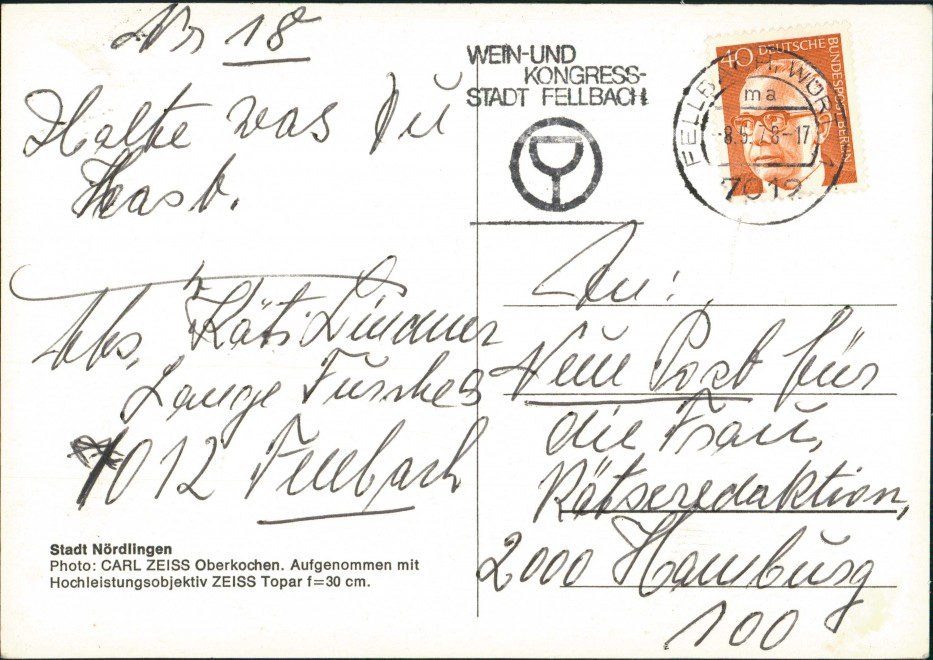 Nr 18
Halte was Du
Hast.
Abs. Käti Lindner
Lange Furche 8
7012 Fellbach
Stadt Nördlingen
Photo: CARL ZEISS Oberkochen. Aufgenommen mit
Hochleistungsobjektiv ZEISS Topar f=30 cm.
WEIN-UND
KONGRESS-
STADT FELLBACH
40 DEUTSCHE
BUNDESPOST BERLIN
FELLBACH, WÜRTT
ma
-8.5.78-17
7012
An:
Neue Post für
die Frau,
Rätselredaktion,
2000 Hamburg
100